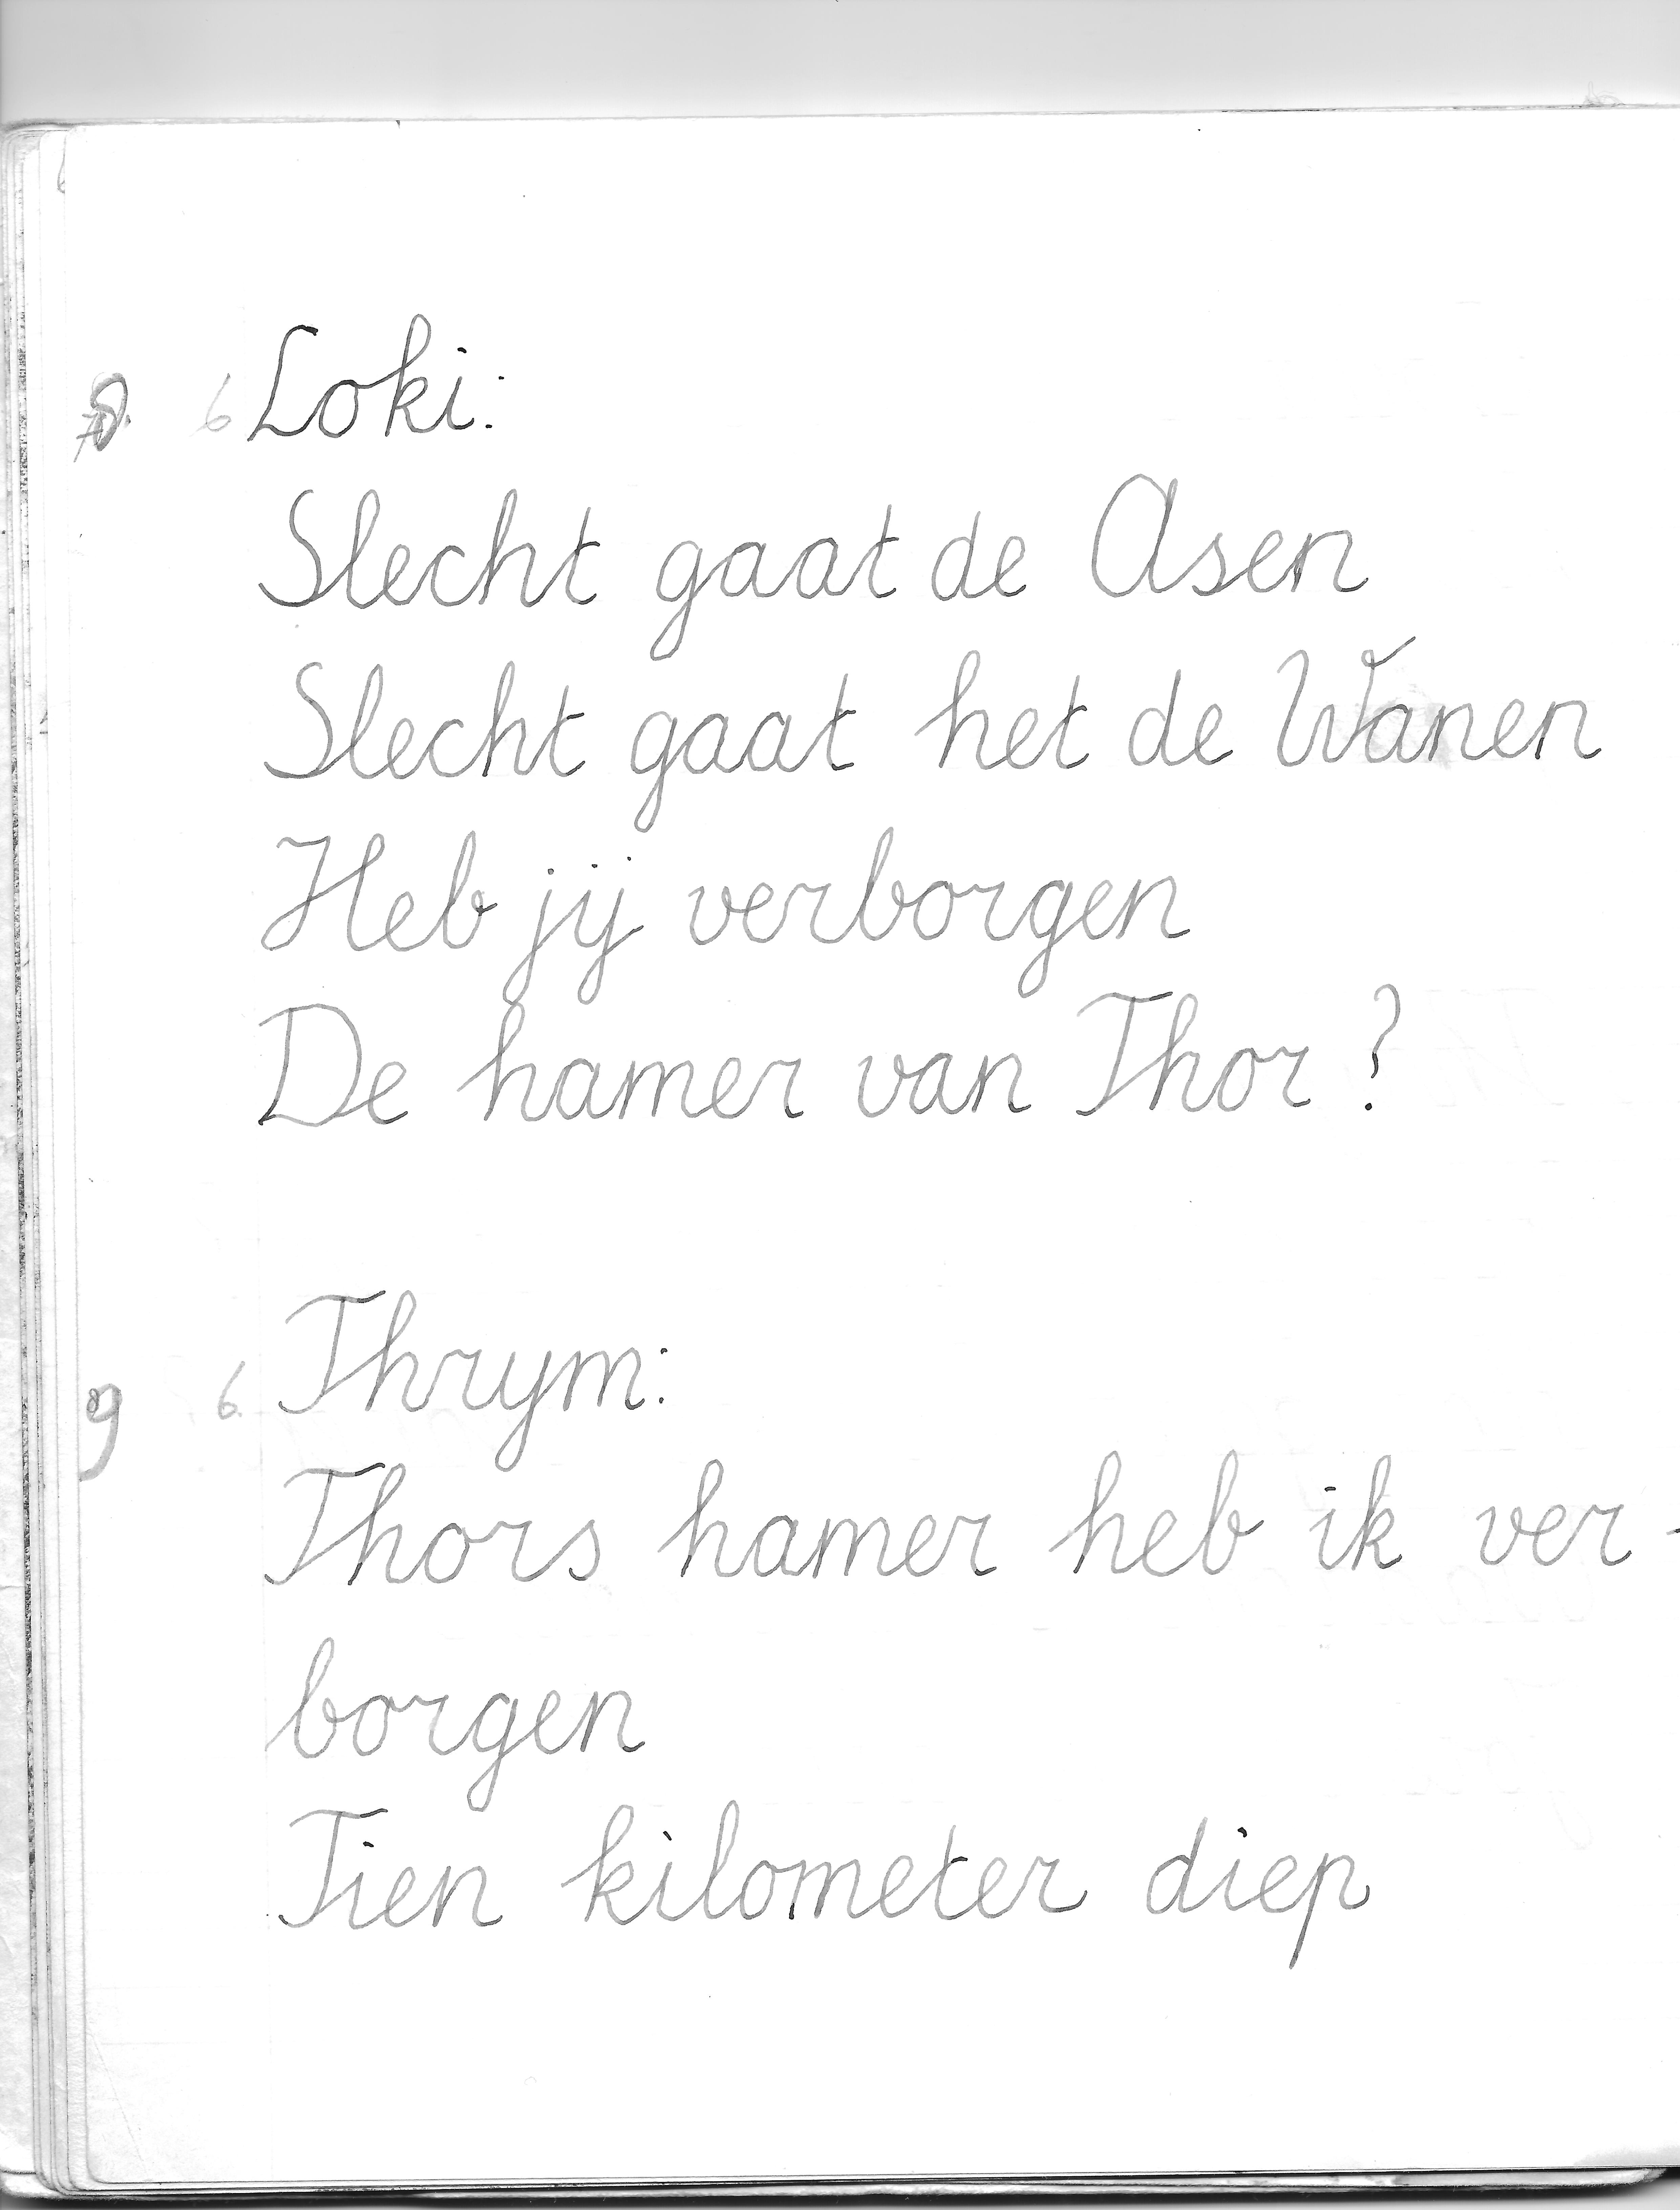 8. 6 Loki:
Slecht gaat de Asen
Slecht gaat het de Wanen
Heb jij verborgen
De hamer van Thor?
Thrym:
9 6.
Thors hamer heb ik ver-
borgen
Tien kilometer diep